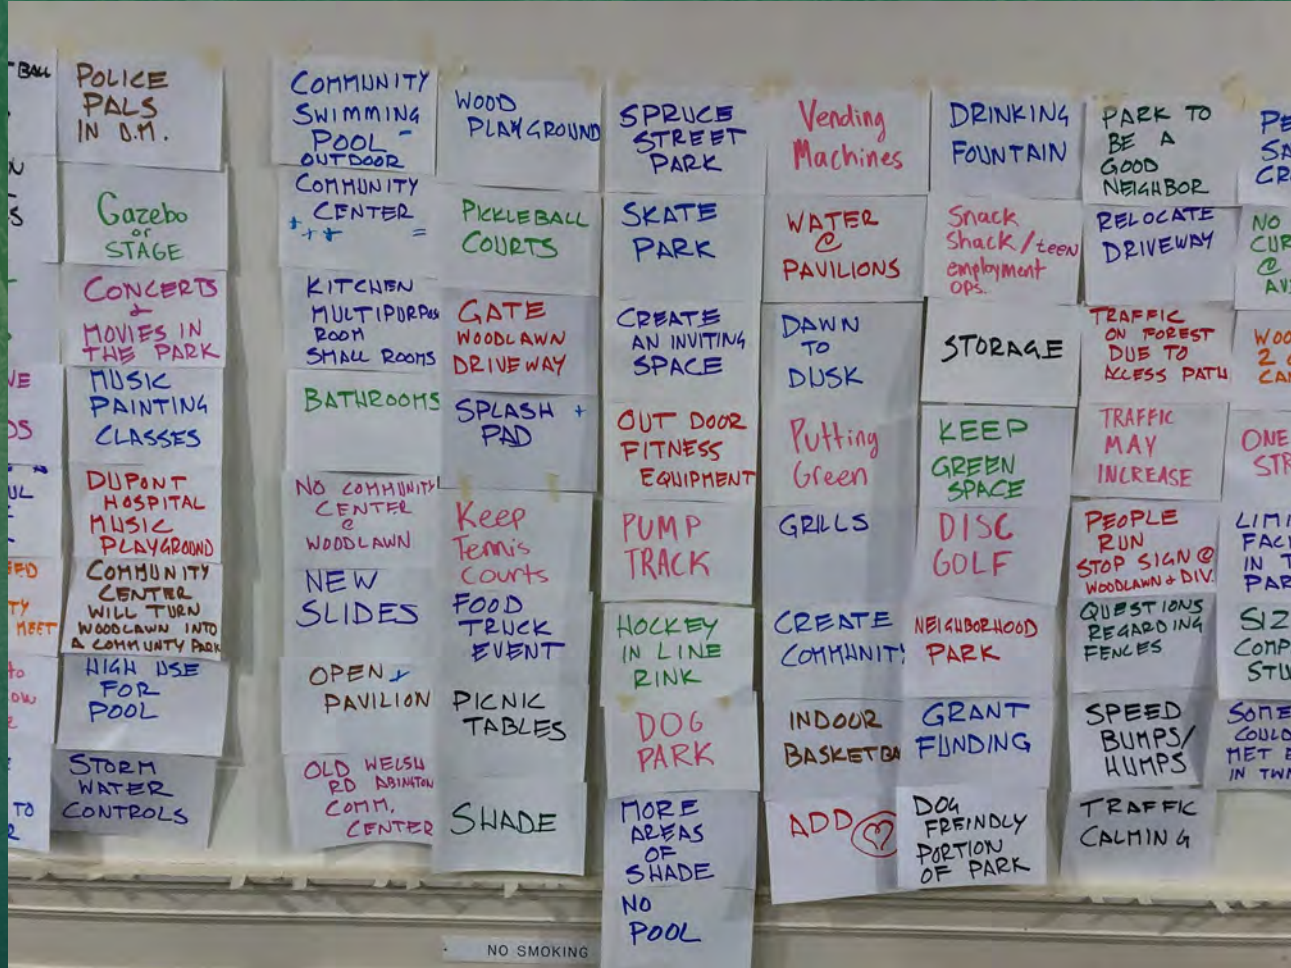 BALL
POLICE
PALS
IN D.M.
Gazebo
or
STAGE
CONCERTS
&
MOVIES IN
THE PARK
MUSIC
PAINTING
CLASSES
DUPONT
HOSPITAL
MUSIC
PLAYGROUND
COMMUNITY
CENTER
WILL TURN
WOODLAWN INTO
A COMMUNITY PARK
HIGH USE
FOR
POOL
STORM
WATER
CONTROLS
MEET
TO
COMMUNITY
SWIMMING
POOL -
OUTDOOR
COMMUNITY
CENTER
+ + + =
KITCHEN
MULTIPURPOS
ROOM
SMALL ROOMS
BATHROOMS
NO COMMUNITY
CENTER
@
WOODLAWN
NEW
SLIDES
OPEN +
PAVILION
OLD WELSH
RD ABINGTON
COMM.
CENTER
WOOD
PLAYGROUND
PICKLEBALL
COURTS
GATE
WOODLAWN
DRIVEWAY
SPLASH +
PAD
Keep
Tennis
Courts
FOOD
TRUCK
EVENT
PICNIC
TABLES
SHADE
SPRUCE
STREET
PARK
SKATE
PARK
CREATE
AN INVITING
SPACE
OUT DOOR
FITNESS
EQUIPMENT
PUMP
TRACK
HOCKEY
IN LINE
RINK
DOG
PARK
MORE
AREAS
OF
SHADE
NO
POOL
Vending
Machines
WATER
@
PAVILIONS
DAWN
TO
DUSK
Putting
Green
GRILLS
CREATE
COMMUNIT
INDOOR
BASKETBA
ADD ♡
DRINKING
FOUNTAIN
Snack
Shack/teen
employment
OPS.
STORAGE
KEEP
GREEN
SPACE
DISC
GOLF
NEIGHBORHOOD
PARK
GRANT
FUNDING
DOG
FREINDLY
PORTION
OF PARK
PARK TO
BE A
GOOD
NEIGHBOR
RELOCATE
DRIVEWAY
TRAFFIC
ON FOREST
DUE TO
ACCESS PATH
TRAFFIC
MAY
INCREASE
PEOPLE
RUN
STOP SIGN @
WOODLAWN + DIV.
QUESTIONS
REGARDING
FENCES
SPEED
BUMPS/
HUMPS
TRAFFIC
CALMING
PE
SA
CR
NO
CUR
@
AV
WOO
2
CA
ONE
STR
LIMI
FACI
IN T
PAR
SIZ
COMP
STU
SOME
COULD
MET
IN TWN
NO SMOKING